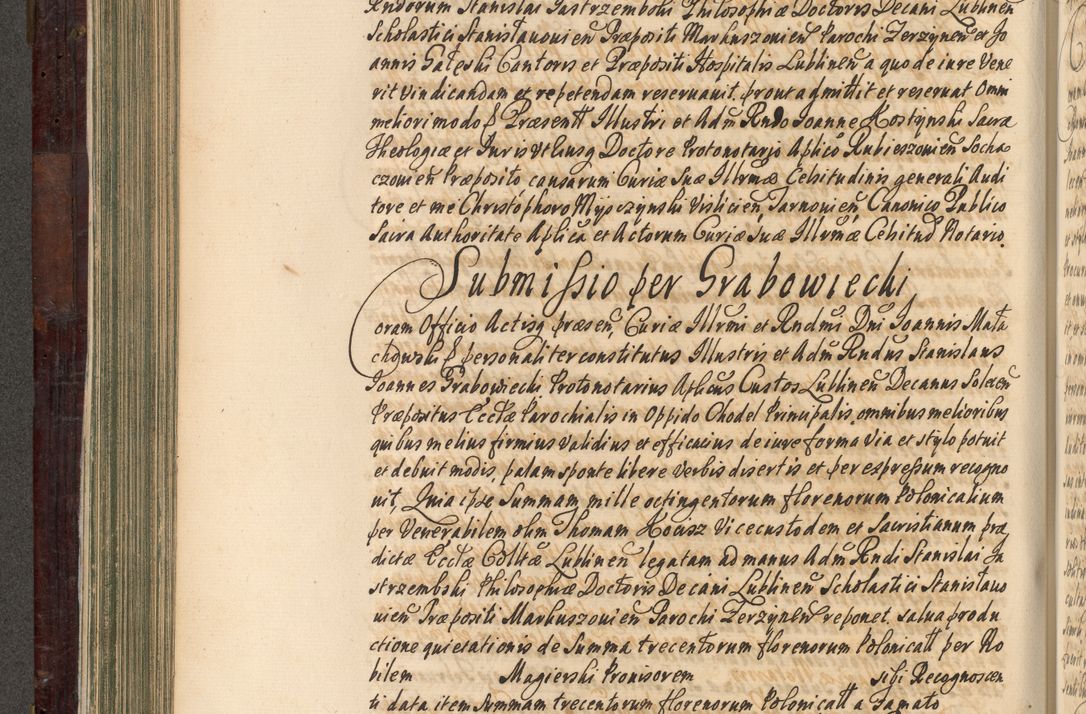 Rndorum Stanislai Jastrzembski Philosophiæ Doctoris Decani Lublinen
Scholastici Stanislauouien Præpositi Markuszouien Parochi Zerzynen et Jo
annis Gałeski Cantoris et Præpositi Hospitalis Lublinen a quo de iure Vene
rit vindicandam et repetendam reseruauit. prout admittit et reseruat Omni
meliori modo P Præsentt Illustri et Adm Rndo Joanne Kostynski Sacræ
Theologiæ et Juris Vtriusq Doctore Protonotario Aplico Rubieszouien Socha
czouien Præposito causarum Curiæ Suæ Illrmæ Celsitudinis generali Audi
tore et me Christophoro Myoczynski Vislicien, Tarnouien, Canonico Publico
Sacra Authoritate Aplica et Actorum Curiæ Suæ Illrmæ Celsitud Notario
Submissio per Grabowiecki
Coram Officio Actisq præsen, Curiæ Illrmi et Rndmi Dni Joannis Mała
chowski P personaliter constitutus Illustris et Adm Rndus Stanislaus
Joannes Grabowiecki Protonotarius Aplicus Custos Lublinen Decanus Solecen
Præpositus Ecctæ Parochialis in Oppido Chodel Principalis, omnibus melioribus
quibus melius firmius validius et efficacius de iure forma Via et stylo potuit
et debuit modis, palam sponte libere verbis disertis et per expressum recogno
uit, Quia ipse Summam mille octingentorum florenorum Polonicalium
per Venerabilem olim Thomam Kocisz Vicecustodem et Sacristianum præ
dictæ Ecctæ Colltæ Lublinen legatam ad manus Adm Rndi Stanislai Ja
strzembski Philosophiæ Doctoris Decani Lublinen Scholastici Stanislauo
uien Præpositi Markuszouien Parochi Zerzynen reponet, salua produ
ctione quietationis de Summa trecentorum florenorum Polonicall per No
bilem Magierski Prouisorem sibi Recognoscen
ti data item Summam trecentorum florenorum Polonicall a Famato